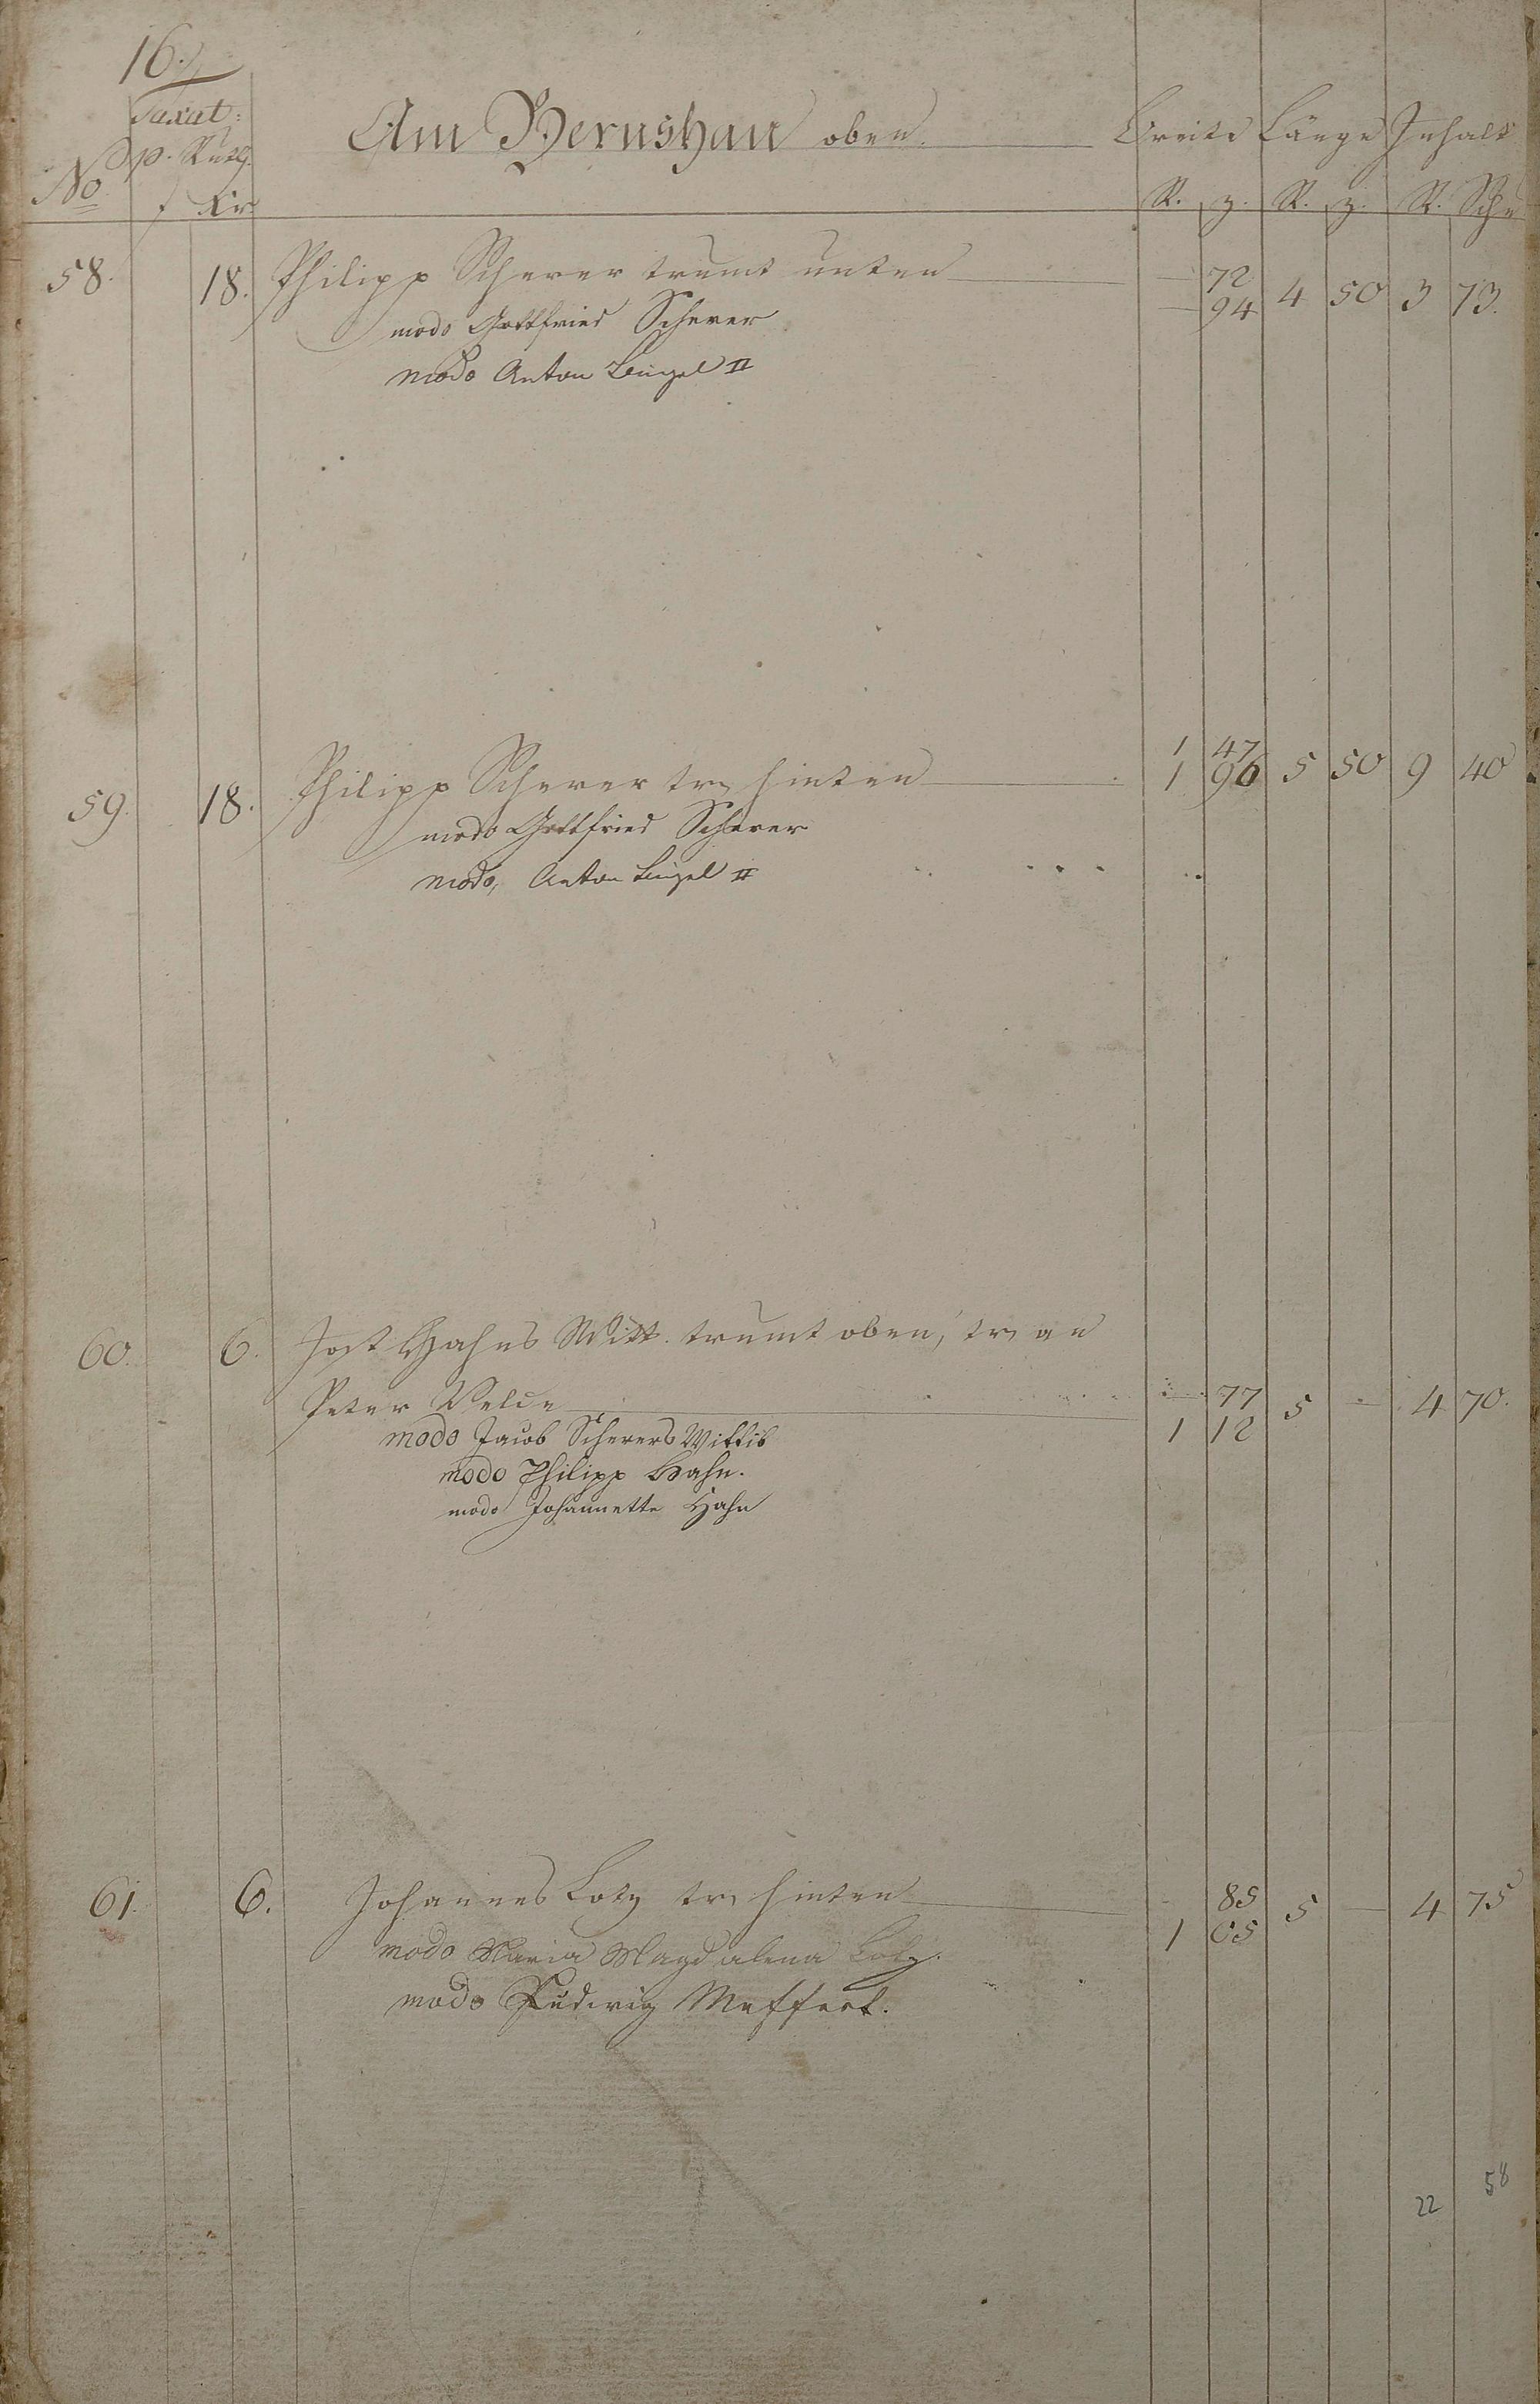 16.
Taxat:
No p. Ruth. Am Bernshau oben. Breite Länge Inhalt
f Kr R. z. R. z. R. Sch
58. 18. Philipp Scherer trumt unten — 72 4 50 3 73.
— 94
modo Gottfried Scherer
modo Anton Bingel II
59. 18. Philipp Scherer trn hinten 1 47 5 50 9 40
1 96
modo Gottfried Scherer
modo, Anton Bingel II
60. 6. Jost Hahns Witt. trumt oben, trn an
Peter Velde — 77 5 — 4 70.
1 12
modo Jacob Scherers Wittib
modo Philipp Hahn.
modo Johannette Hahn
61. 6. Johannes Lotz trn hinten - 85 5 — 4 75
1 05
modo Maria Magdalena Lotz.
modo Ludwig Meffert.
22 58